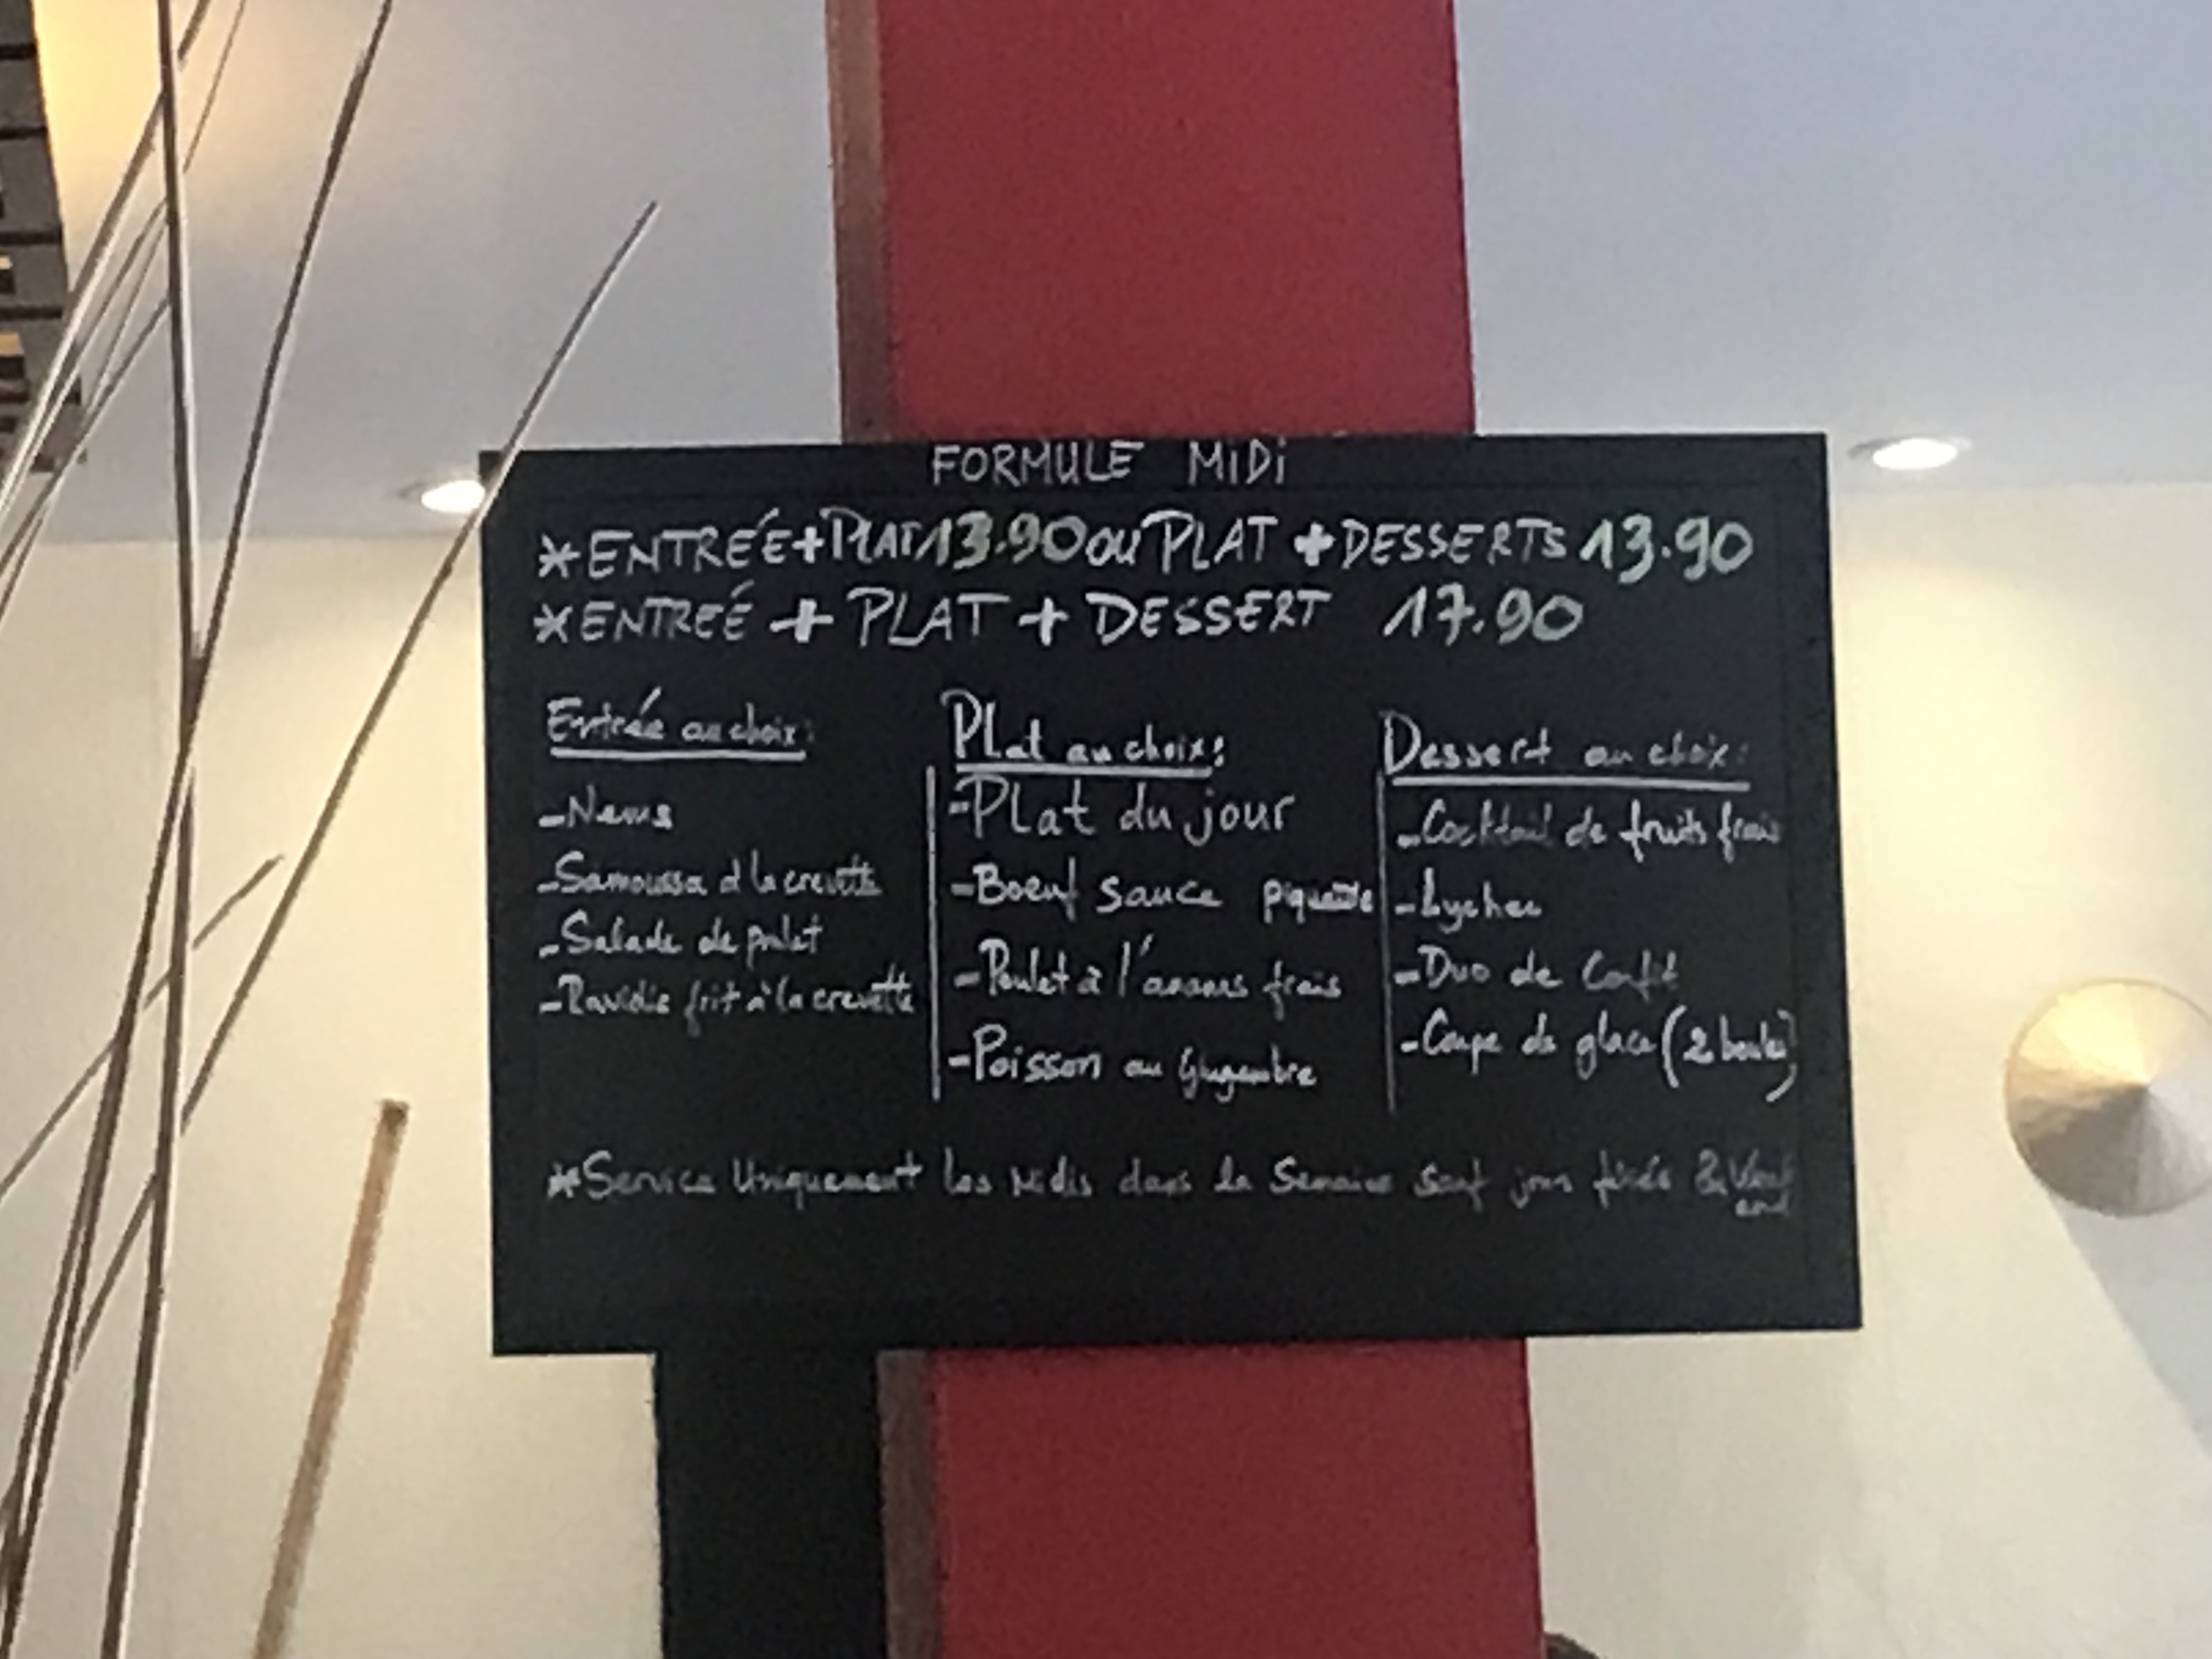 FORMULE MiDi
*ENTRÉE+PLAT 13.90 OU PLAT + DESSERTS 13.90
*ENTREÉ + PLAT + DESSERT 17.90
Entrée au choix:
-Nems
-Samoussa à la crevette
-Salade de poulet
-Raviolis frit à la crevette
Plat au choix:
-Plat du jour
-Boeuf sauce piquante
-Poulet à l'ananas frais
-Poisson au Gingembre
Dessert au choix:
-Cocktail de fruits frais
-Lychee
-Duo de Confit
-Coupe de glace (2 boules)
*Service Uniquement les Midis dans la Semaine sauf jours fériés & Week
end